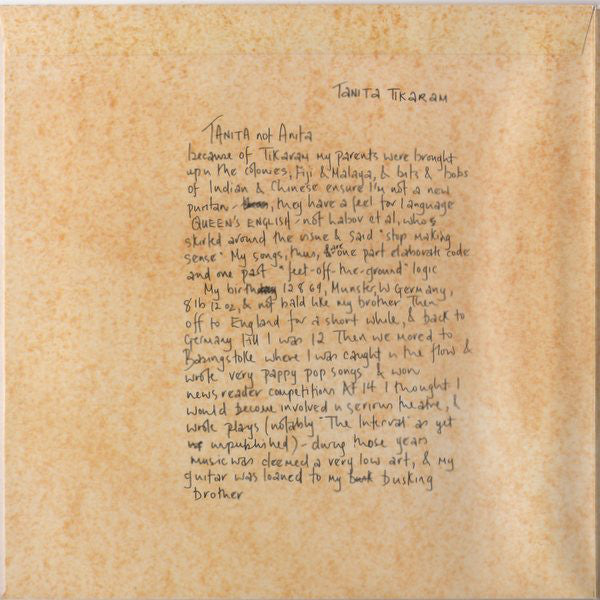 TANITA TIKARAM
TANITA not Anita
because of TIKARAM my parents were brought
up in the colonies, Fiji & Malaya, & bits & bobs
of Indian & Chinese ensure I'm not a new
puritan - they have a feel for language
QUEEN'S ENGLISH - not Labov et al, who's
skirted around the issue & said "stop making
sense" My songs, thus, are one part elaborate code
and one part "feet-off-the-ground" logic
My birthday 12 8 69, Munster, W Germany,
8 lb 12 oz, & not bald like my brother Then
off to England for a short while, & back to
Germany till I was 12 Then we moved to
Basingstoke where I was caught in the flow &
wrote "very pappy pop songs" & won
newsreader competitions At 14 I thought I
would become involved in serious theatre, &
wrote plays (notably "The Interval" as yet
unpublished) - during those years
music was deemed a very low art, & my
guitar was loaned to my busking
brother